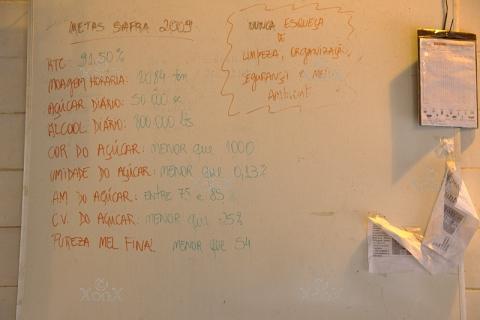 METAS SAFRA 2009
RTC: 91,50%
MOAGEM HORÁRIA: 1084 ton
AÇÚCAR DIÁRIO: 50.000 sc
ÁLCOOL DIÁRIO: 800.000 Lts
COR DO AÇÚCAR: MENOR que 1000
UMIDADE DO AÇÚCAR: MENOR que 0,13%
AM DO AÇÚCAR: ENTRE 75 e 85%
CV. DO AÇUCAR: MENOR que 25%
PUREZA MEL FINAL MENOR que 54
NUNCA ESQUEÇA
DE
LIMPEZA, ORGANIZAÇÃO,
SEGURANÇA e MEIO
AMBIENT